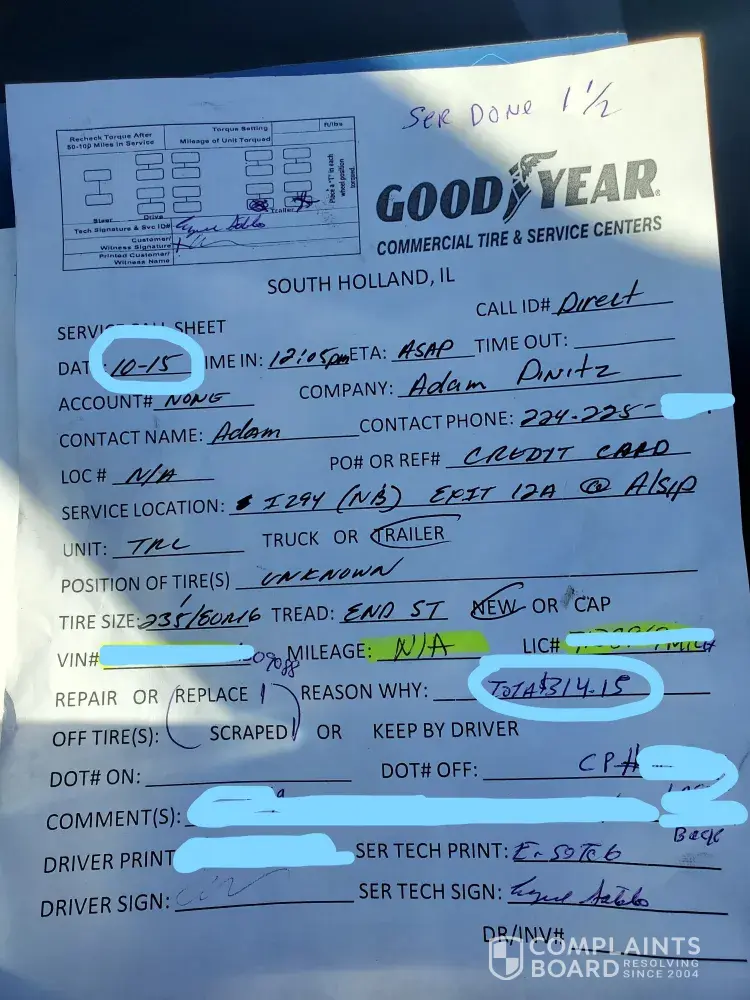 SER DONE 1 1/2
Recheck Torque After
50-100 Miles in Service
Torque Setting
Mileage of Unit Torqued
ft/lbs
Place a "T" in each
wheel position
torqued.
Steer Drive Trailer
Tech Signature & Svc ID#
Customer/
Witness Signature
Printed Customer/
Witness Name
GOODYEAR
COMMERCIAL TIRE & SERVICE CENTERS
SOUTH HOLLAND, IL
CALL ID# Direct
SERVICE CALL SHEET
DATE: 10-15 TIME IN: 12:05pm ETA: ASAP TIME OUT:
ACCOUNT# NONE COMPANY: Adam Dinitz
CONTACT NAME: Adam CONTACT PHONE: 224-225-
LOC # N/A PO# OR REF# CREDIT CARD
SERVICE LOCATION: I294 (NB) EXIT 12A @ Alsip
UNIT: TRL TRUCK OR TRAILER
POSITION OF TIRE(S) UNKNOWN
TIRE SIZE: 235/80R16 TREAD: END ST NEW OR CAP
VIN# MILEAGE: N/A LIC#
REPAIR OR REPLACE 1 REASON WHY: TOTA$314.15
OFF TIRE(S): SCRAPED 1 OR KEEP BY DRIVER
DOT# ON: DOT# OFF: CP#
COMMENT(S):
Back
DRIVER PRINT SER TECH PRINT:
DRIVER SIGN: SER TECH SIGN:
DR/INV#
COMPLAINTS
BOARD RESOLVING
SINCE 2004